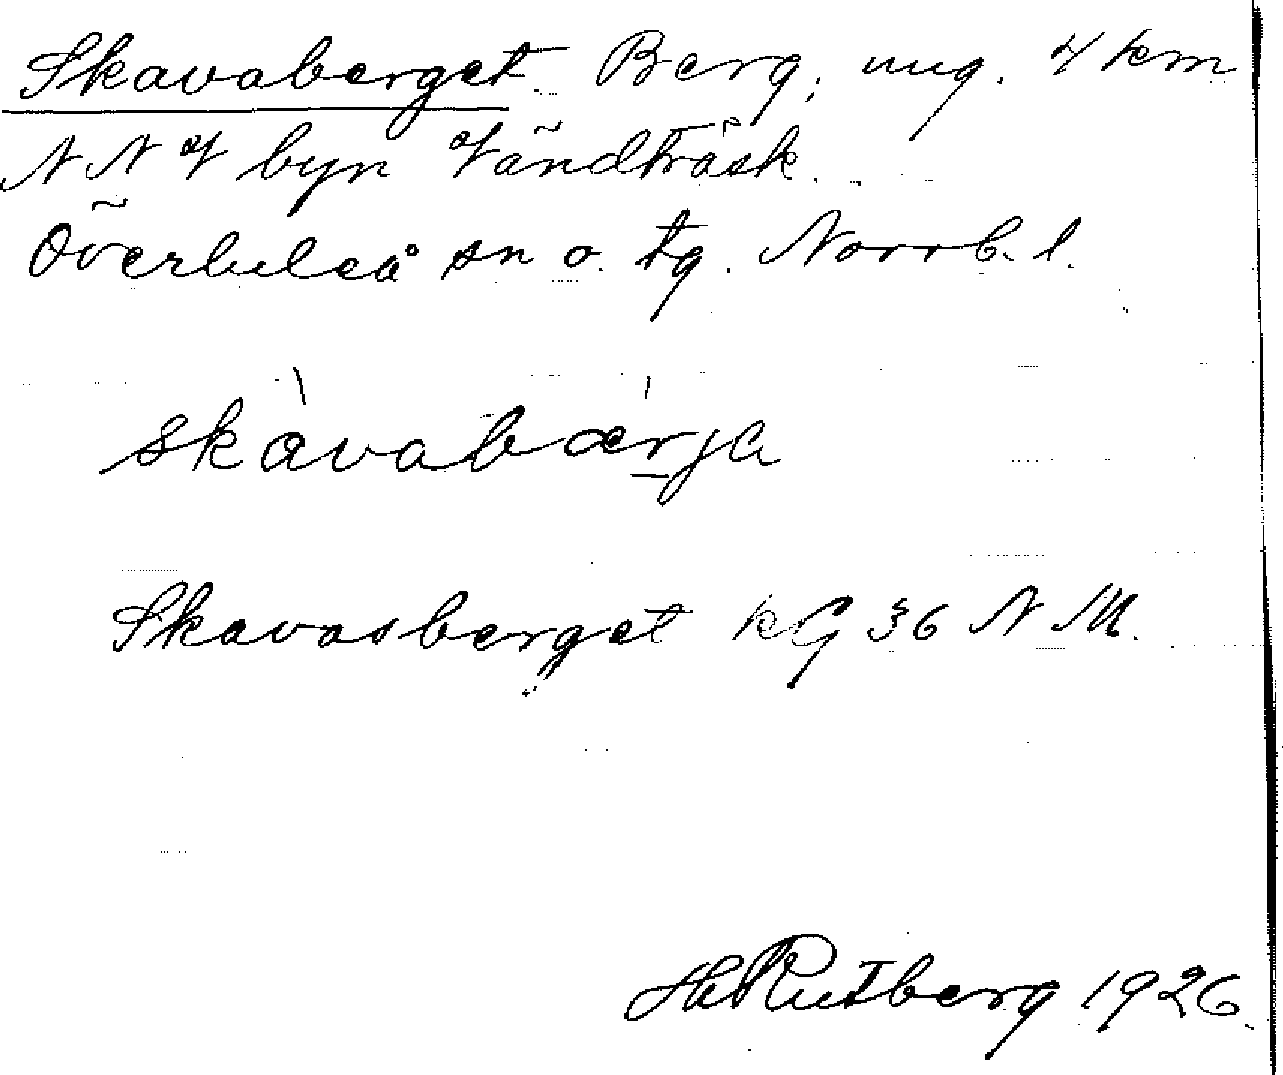 Skavaberget Berg, ung. 4 km
N N V byn Vändträsk.
Överluleå sn o. tg. Norrb. l.
skàvabærja
Skavasberget kG 36 N M.
H. Rutberg 1926.